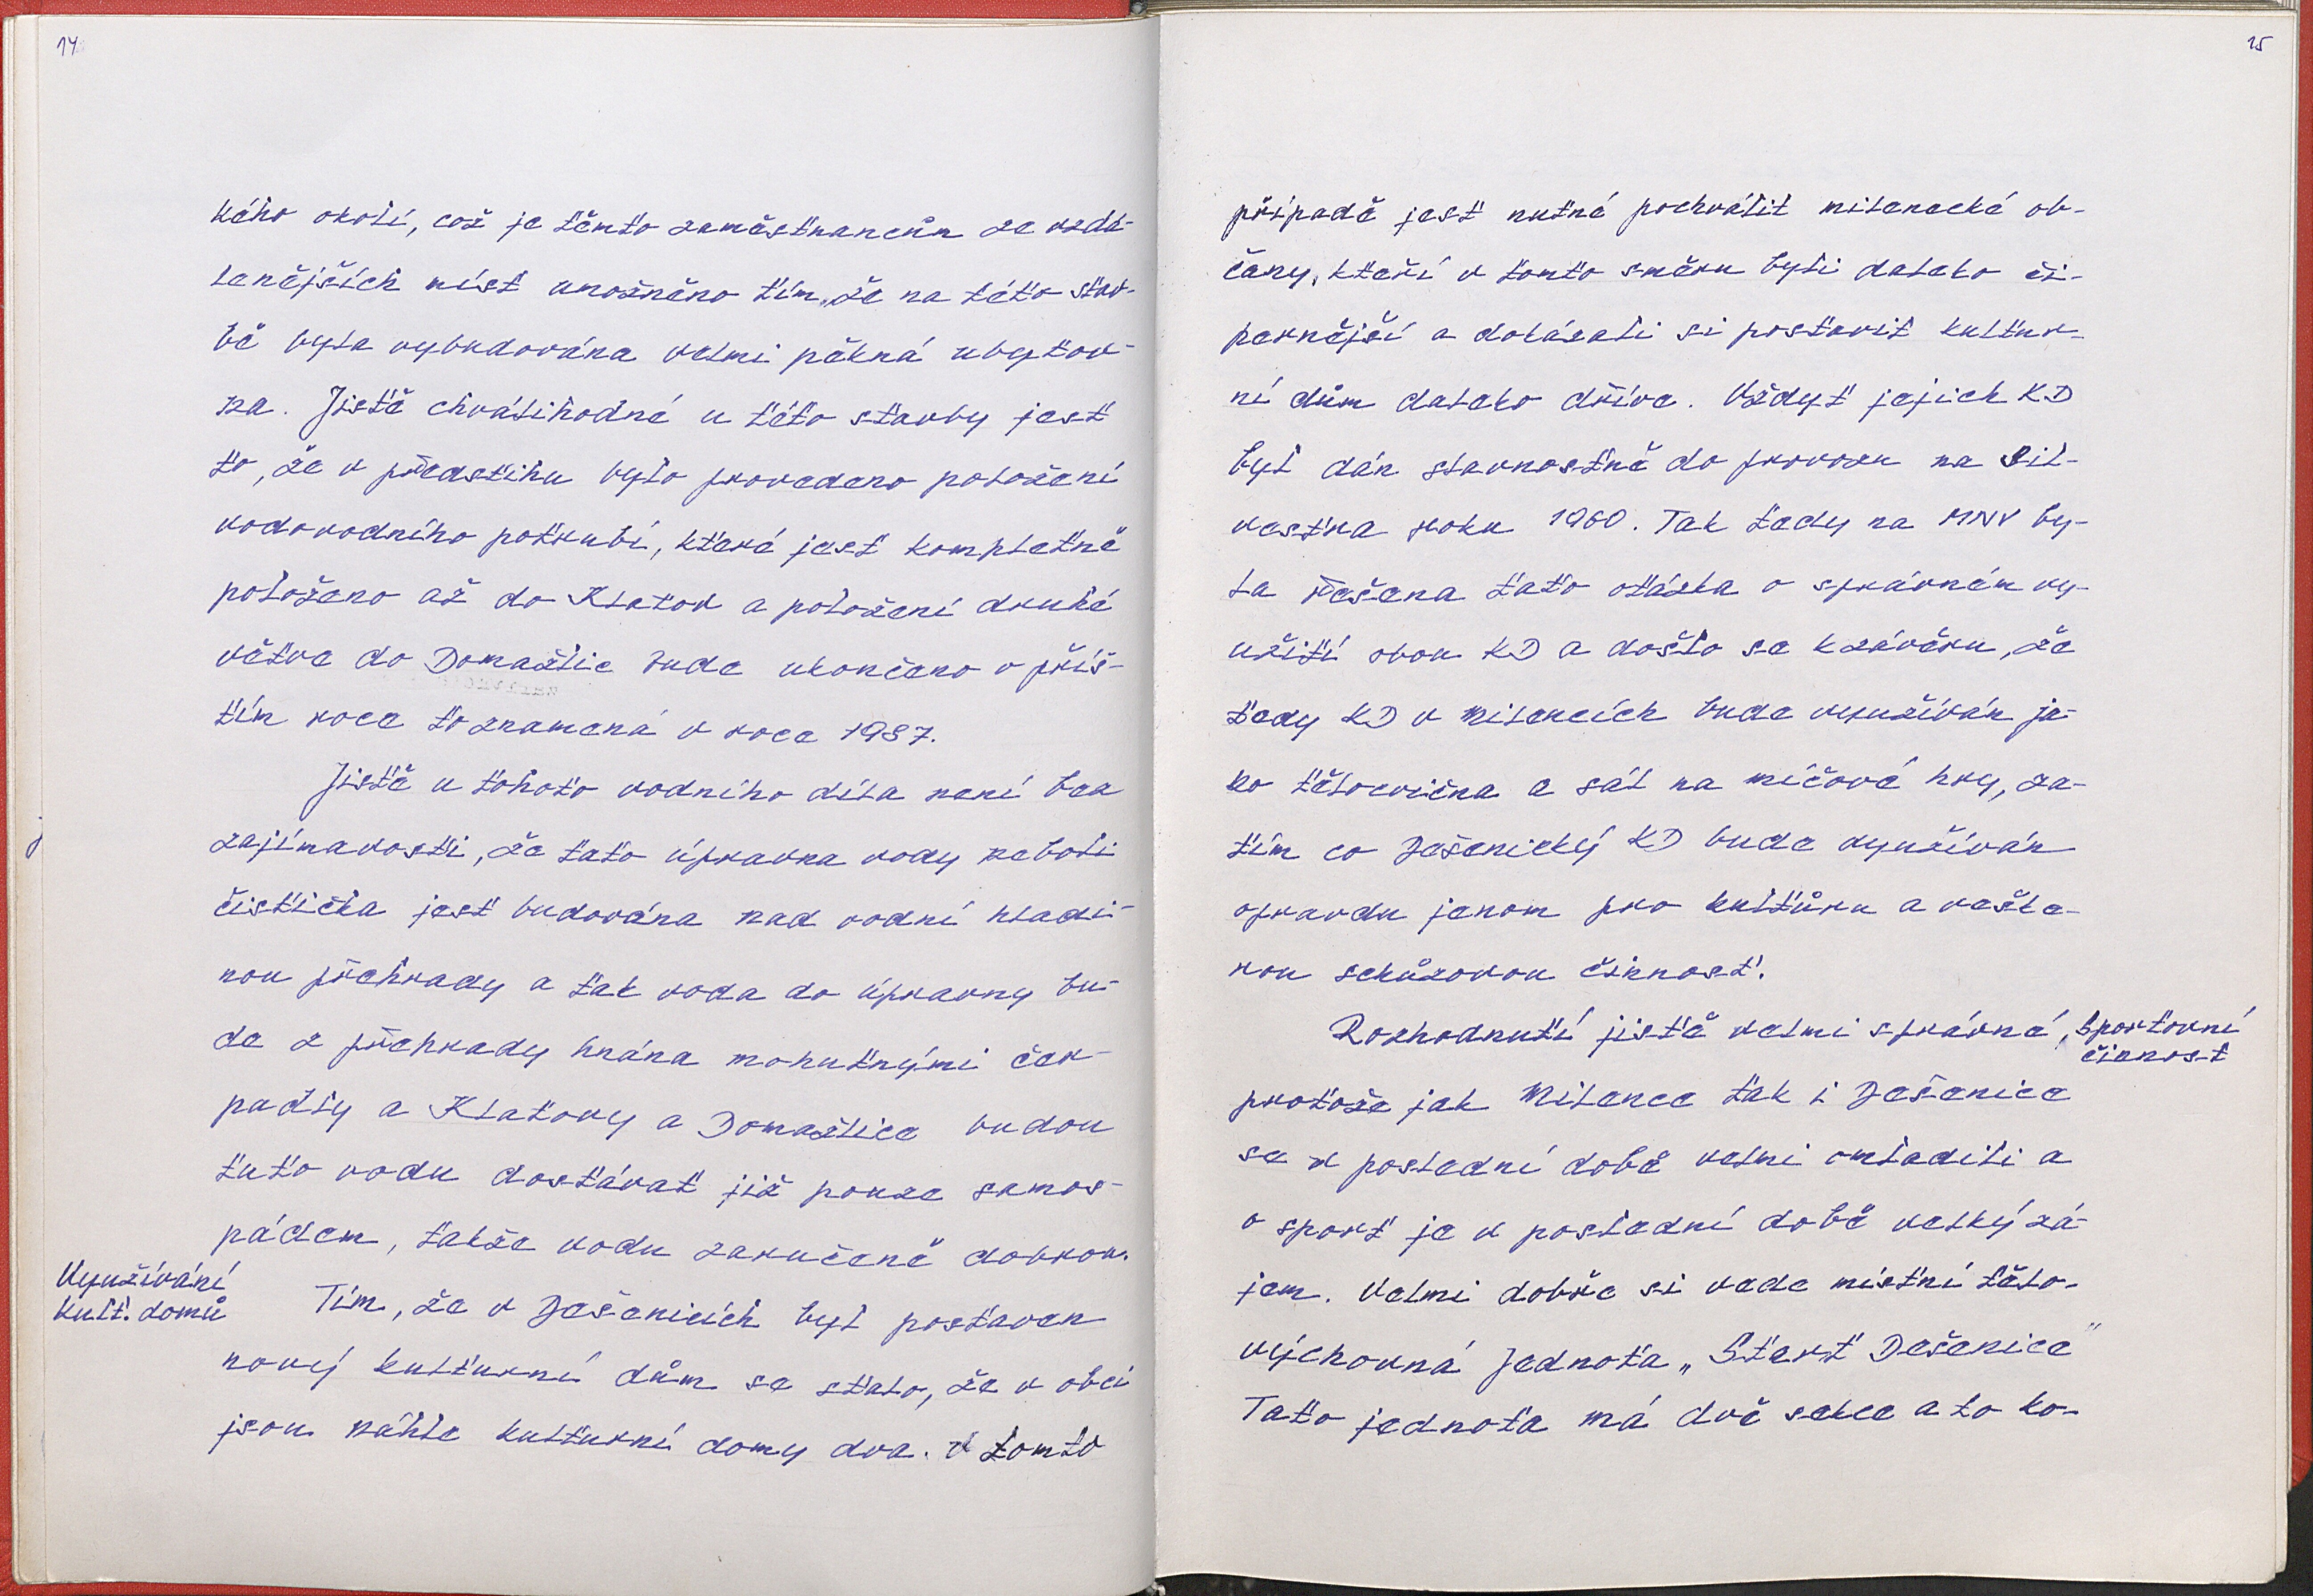 14
kého okolí, což je těmto zaměstnancům ze vzdá-
lenějších míst umožněno tím, že na této stav-
bě byla vybudována velmi pěkná ubytov-
na. Jistě chvályhodné u této stavby jest
to, že v předstihu bylo provedeno položení
vodovodního potrubí, které jest kompletně
položeno až do Klatov a položení druhé
větve do Domažlic bude ukončeno v příš-
tím roce to znamená v roce 1987.
Jistě u tohoto vodního díla není bez
zajímavosti, že tato úpravna vody neboli
čistička jest budována nad vodní hladi-
nou přehrady a tak voda do úpravny bu-
de z přehrady hnána mohutnými čer-
padly a Klatovy a Domažlice budou
tuto vodu dostávat již pouze samos-
pádem, takže vodu zaručeně dobrou.
Využívání
kult. domů
Tím, že v Dešenicích byl postaven
nový kulturní dům se stalo, že v obci
jsou náhle kulturní domy dva. V tomto
15
případě jest nutné pochválit milenecké ob-
čany, kteří v tomto směru byli daleko či-
pernější a dokázali si postavit kultur-
ní dům daleko dříve. Vždyť jejich KD
byl dán slavnostně do provozu na Sil-
vestra roku 1960. Tak tedy na MNV by-
la řešena tato otázka o správném vy-
užití obou KD a došlo se k závěru, že
tedy KD v Milencích bude využíván ja-
ko tělocvična a sál na míčové hry, za-
tím co Dešenický KD bude využíván
opravdu jenom pro kultůru a veške-
rou schůzovou činnost.
Rozhodnutí jistě velmi správné,
Sportovní
činnost
protože jak Milence tak i Dešenice
se v poslední době velmi omladili a
o sport je v poslední době velký zá-
jem. Velmi dobře si vede místní tělo-
výchovná jednota „Start Dešenice"
Tato jednota má dvě sekce a to ko-